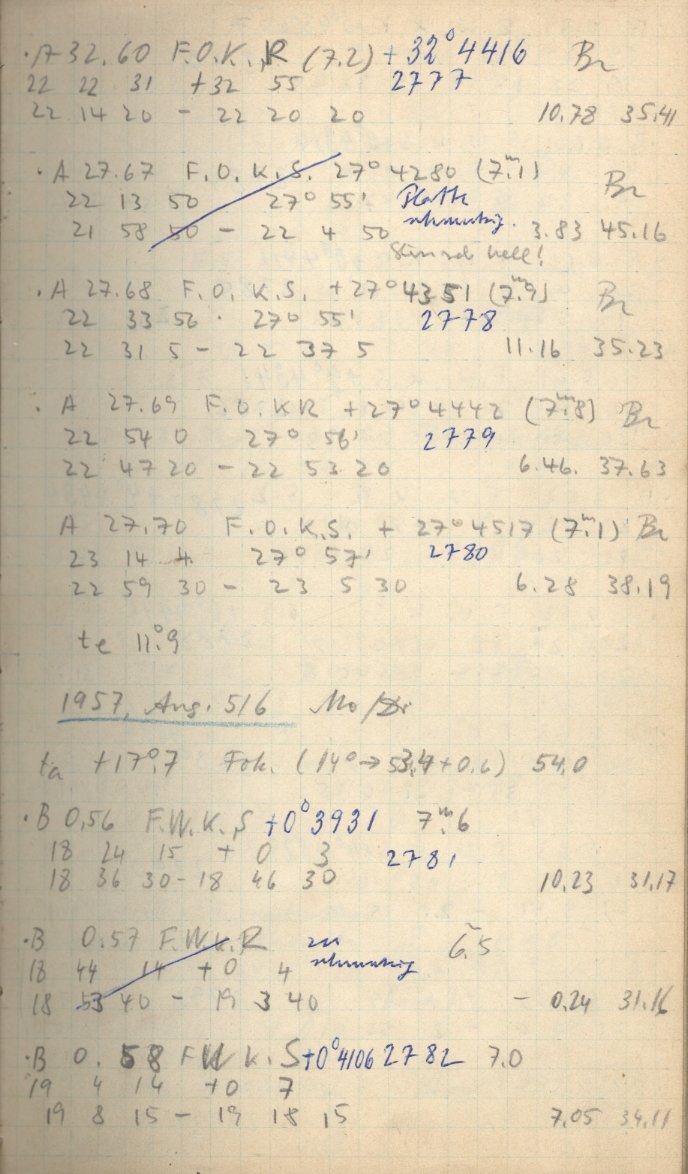 · A 32.60 F.O.K.R (7.2) +32° 4416 Br
22 22 31 +32 55 2777
22 14 20 - 22 20 20 10.78 35.41
· A 27.67 F.O.K.S. 27° 4280 (7ᵐ.1) Br
22 13 50 27° 55' Platte
21 58 50 - 22 4 50 schmutzig. 3.83 45.16
hell!
· A 27.68 F.O.K.S. +27° 4351 (7ᵐ.9) Br
22 33 56 · 27° 55' 2778
22 31 5 - 22 37 5 11.16 35.23
· A 27.69 F.O.KR +27° 4442 (7ᵐ.8) Br
22 54 0 27° 56' 2779
22 47 20 - 22 53 20 6.46. 37.63
A 27.70 F.O.K.S. + 27° 4517 (7ᵐ.1) Br
23 14 4 27° 57' 2780
22 59 30 - 23 5 30 6.28 38.19
te 11°.9
1957, Aug. 5/6 Mo/Di
ta +17°.7 Fok. (14° → 53.4 + 0.6) 54.0
· B 0.56 F.W.K.S +0° 3931 7ᵐ.6
18 24 15 + 0 3 2781
18 36 30 - 18 46 30 10.23 31.17
· B 0.57 F.W.K.R zu 6.5
18 44 14 +0 4 schmutzig
18 53 40 - 19 3 40 - 0.24 31.16
· B 0.58 F.W.K.S +0° 4106 2782 7.0
19 4 14 +0 7
19 8 15 - 19 18 15 7.05 34.11